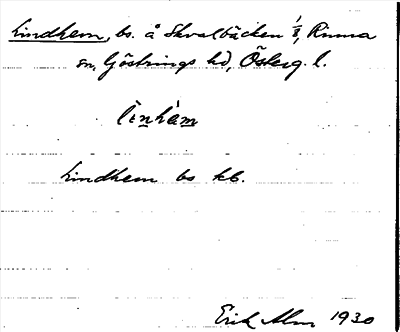 Lindhem, bs. å Skvalbäcken 1/8, Rinna
sn, Göstrings hd, Österg. l.
lìnhàm
Lindhem bs kb.
Erik Alm 1930